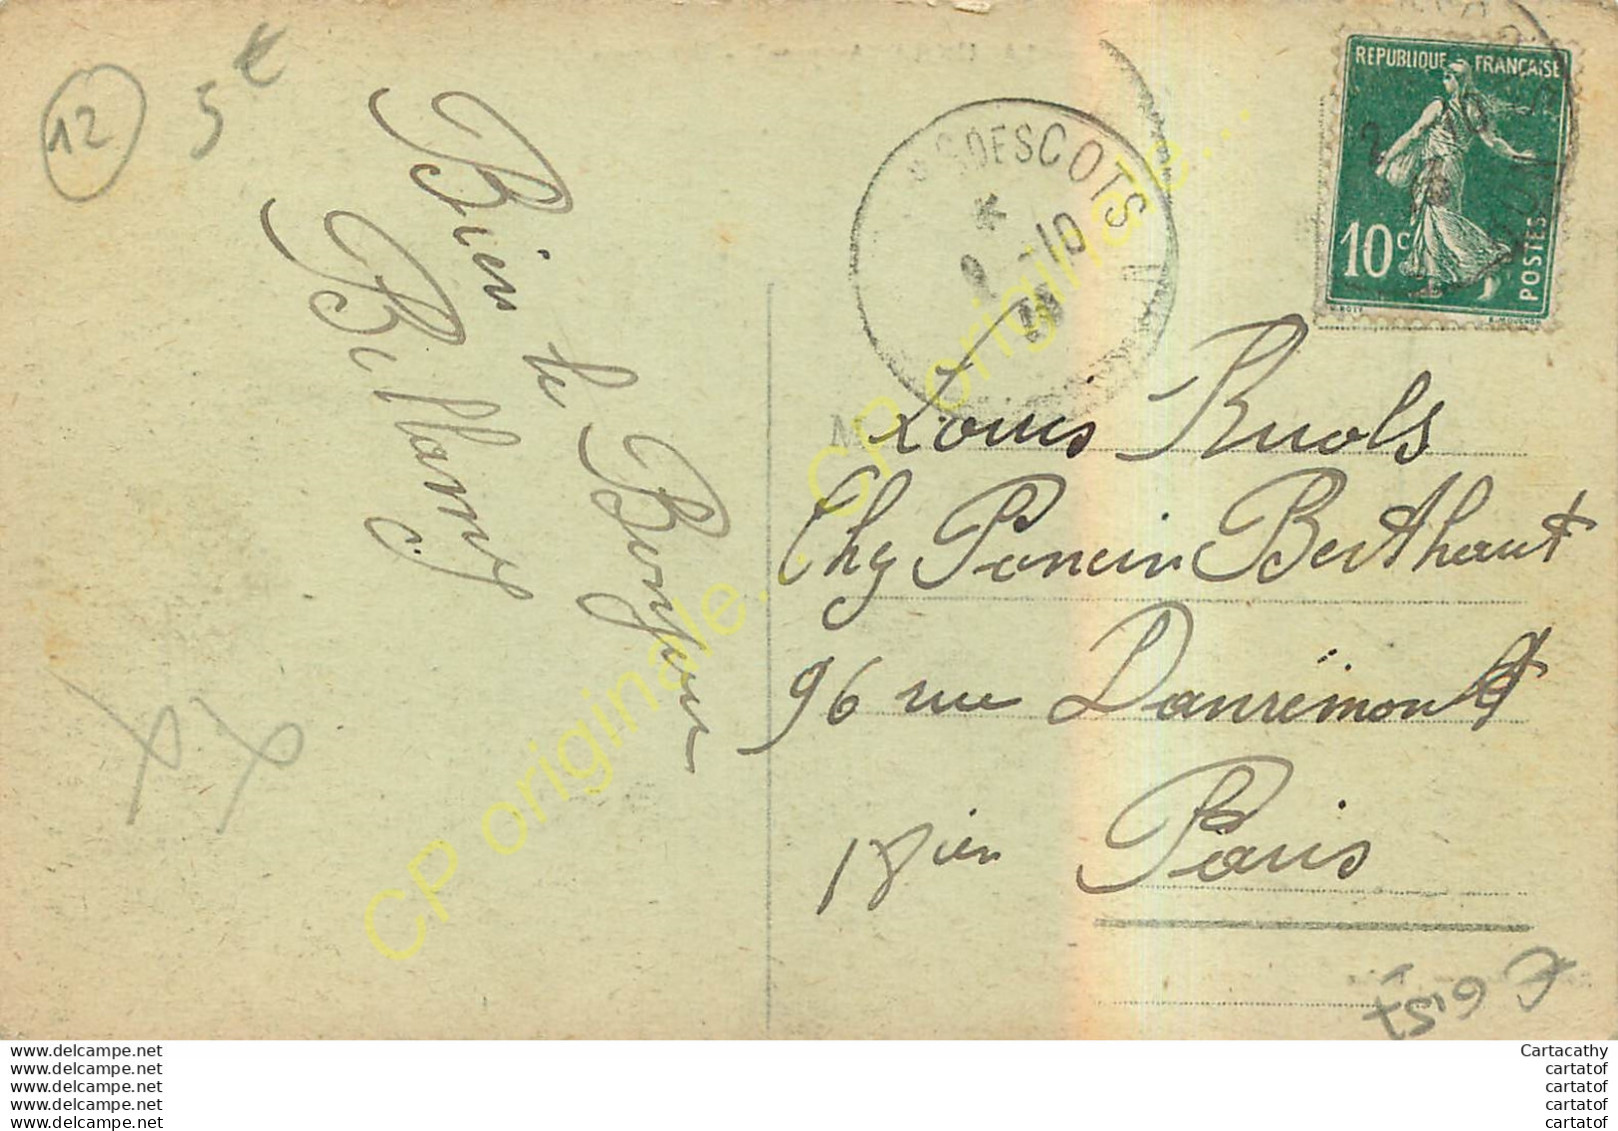 12
5 €
Bien le Bonjour
Bellamy
OTS
-10
REPUBLIQUE FRANÇAISE
10 c
POSTES
2 -10
M
Louis Ruols
Chez Poncin Berthaut
96 rue Danrémont
18 ien Paris
CP originale... CP originale...
www.delcampe.net
www.delcampe.net
www.delcampe.net
www.delcampe.net
www.delcampe.net
Cartacathy
cartatof
cartatof
cartatof
cartatof